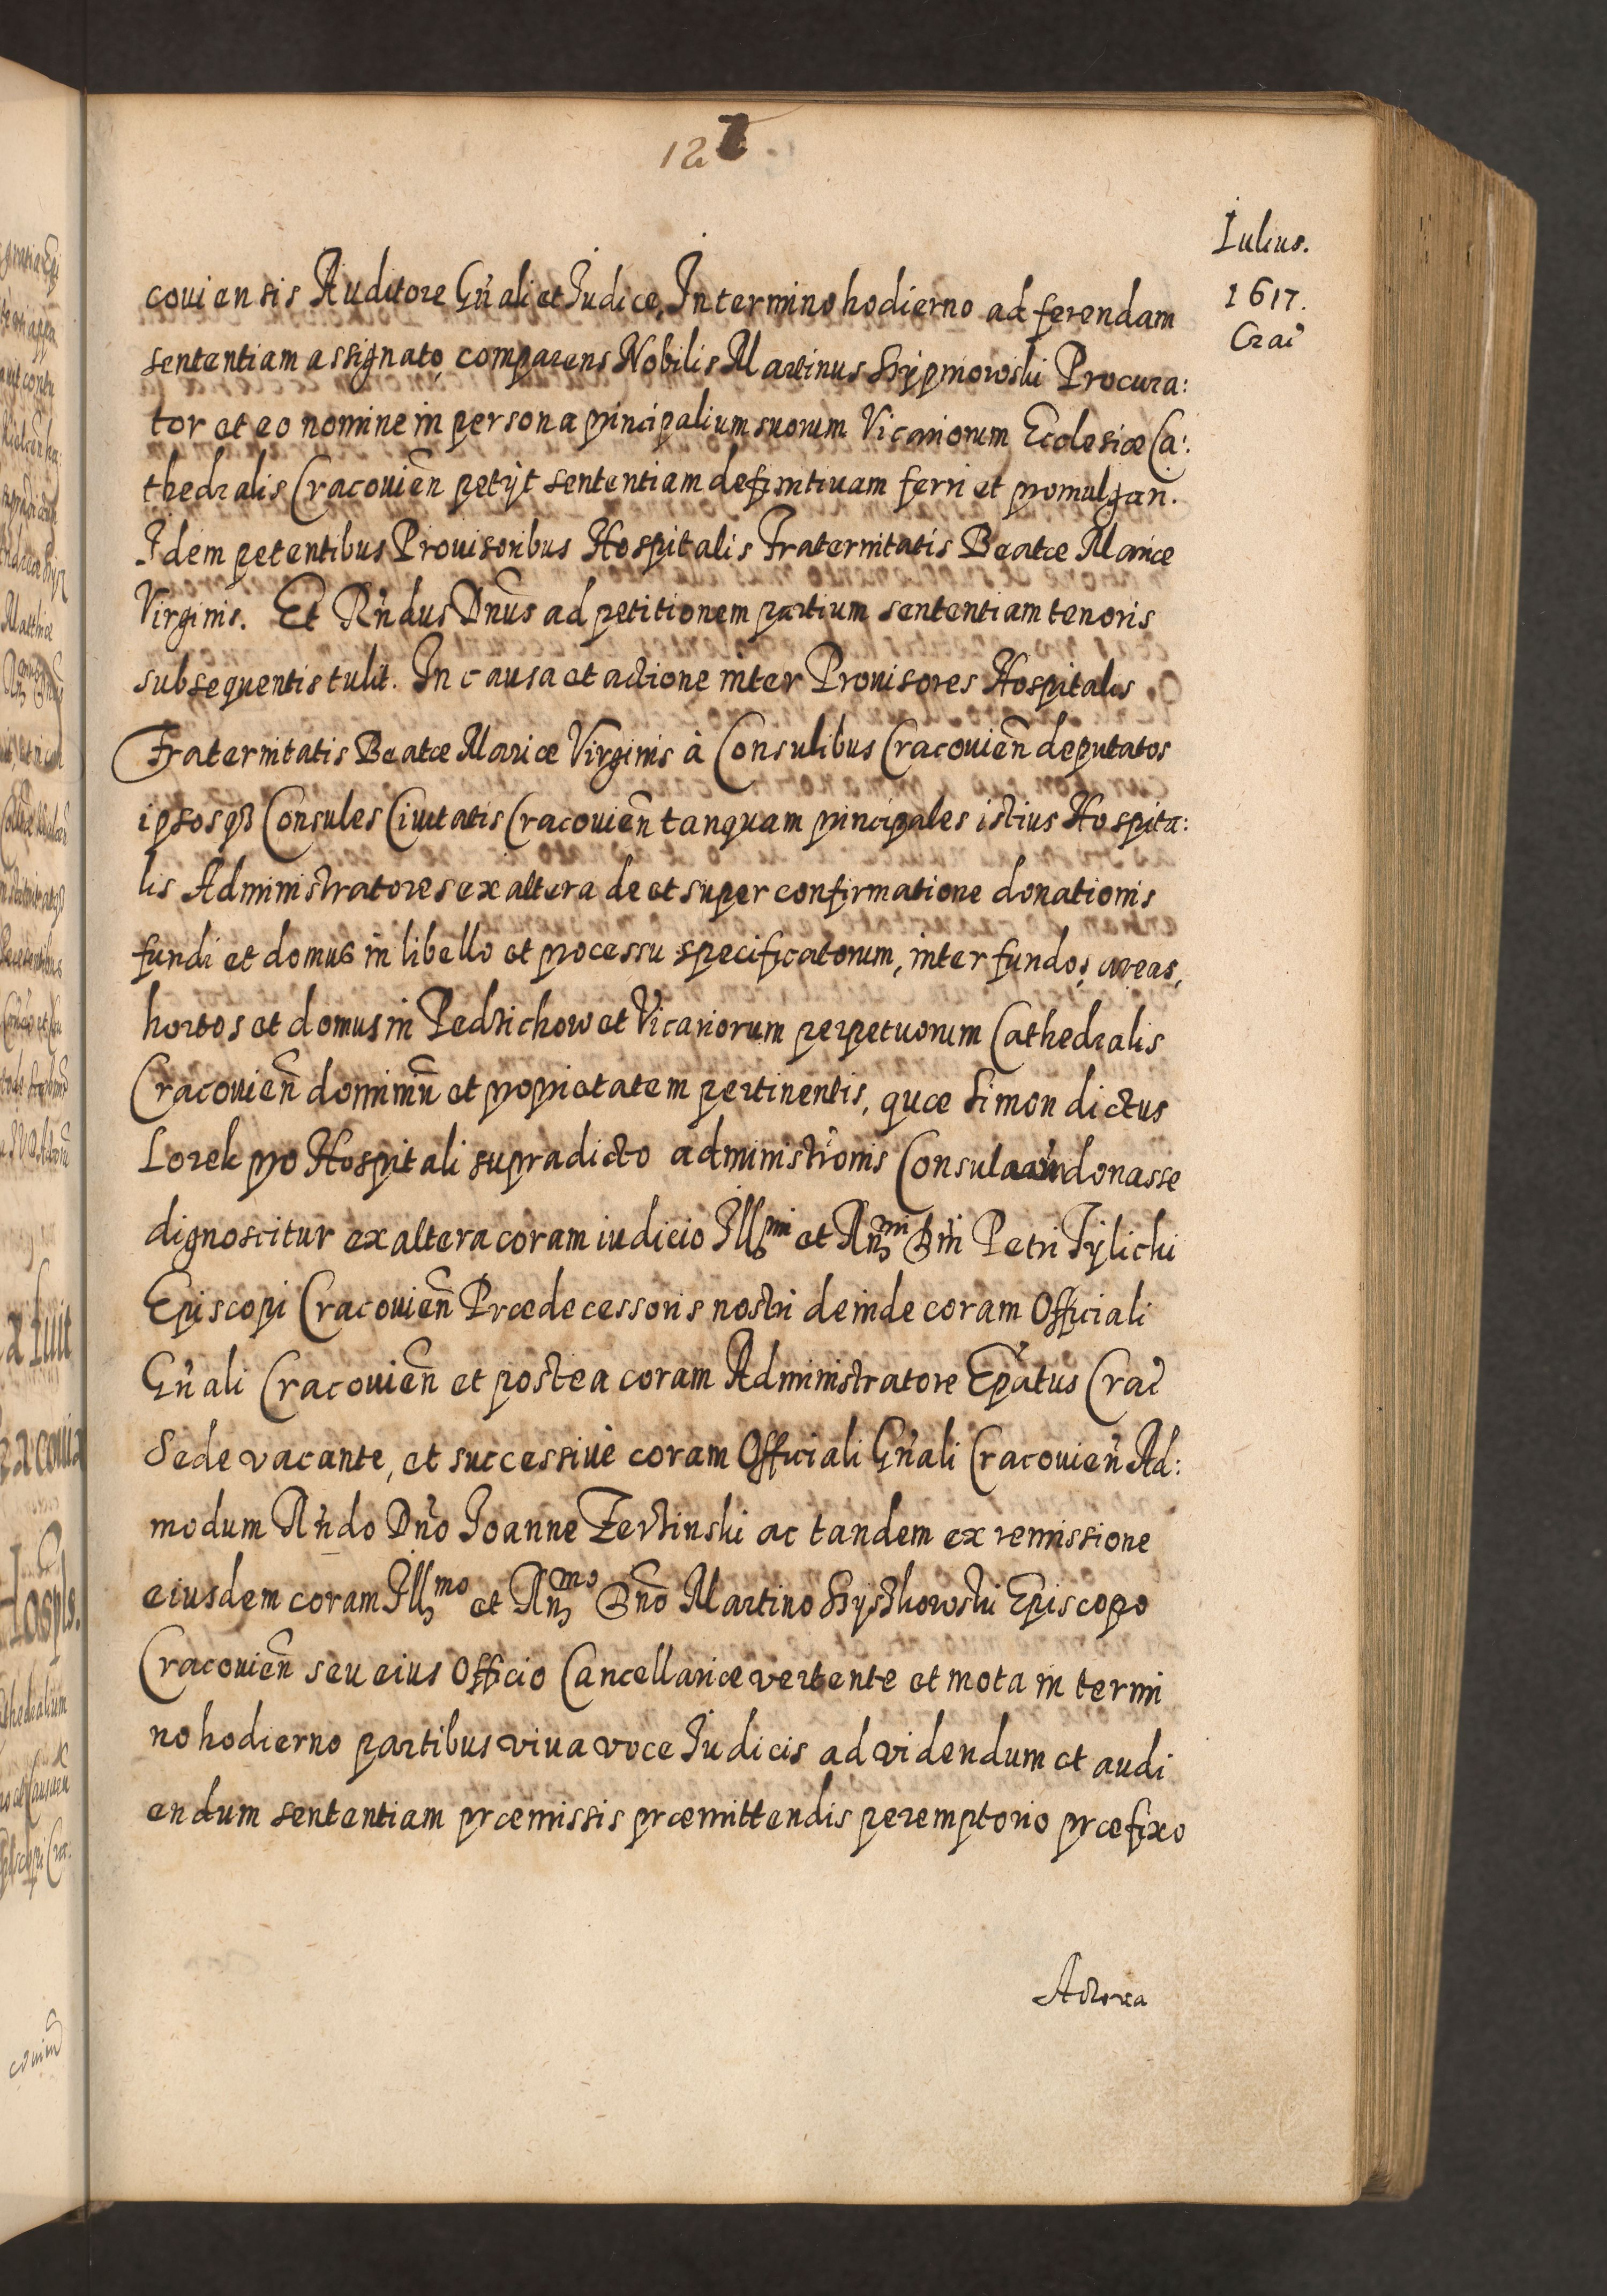 Iulius.
1617.
Crac̃
couiensis Auditore Gñali et Iudice, In termino hodierno ad ferendam
sententiam assignato, comparens Nobilis Martinus Procura:
tor et eo nomine in persona principalium suorum Vicariorum Ecclesiæ Ca:
thedralis Cracouien̄ petÿt sententiam definitiuam ferri et promulgari.
Idem petentibus Prouisoribus Hospitalis Fraternitatis Beatæ Mariæ
Virginis. Et Rñdus Dñus ad petitionem partium sententiam tenoris
subsequentis tulit. In causa et actione inter Prouisores Hospitalis
Fraternitatis Beatæ Mariæ Virginis à Consulibus Cracouien̄ deputatos
ipsosqȝ Consules Ciuitatis Cracouien̄ tanquam principales istius Hospita:
lis Administratores ex altera de et super confirmatione donationis
fundi et domus in libello et processu specificatorum, inter fundos, areas,
hortos et domus in Pedzichow et Vicariorum perpetuorum Cathedralis
Cracouien̄ dominiũ et proprietatem pertinentis, quæ Simon dictus
Lorek pro Hospitali supradicto administr̃onis donasse
dignoscitur ex altera coram iudicio Illmi et Rñmi Dñi Petri Tÿlicki
Episcopi Cracouien̄ Prædecessoris nostri deinde coram Officiali
Gñali Cracouien̄ et postea coram Administratore Ep̃atus Crac̃
Sede vacante, et successiuè coram Officiali Gñali Cracouien̄ Ad:
modum Rñdo Dño Ioanne ac tandem ex remissione
eiusdem coram Illmo et Rñmo Dño Martino Szyszkowski Episcopo
Cracouien̄ seu eius Officio Cancellariæ vertente et mota in termi
no hodierno partibus viua voce Iudicis ad videndum et audi
endum sententiam præmissis præmittendis peremptorio præfixo
Actorea